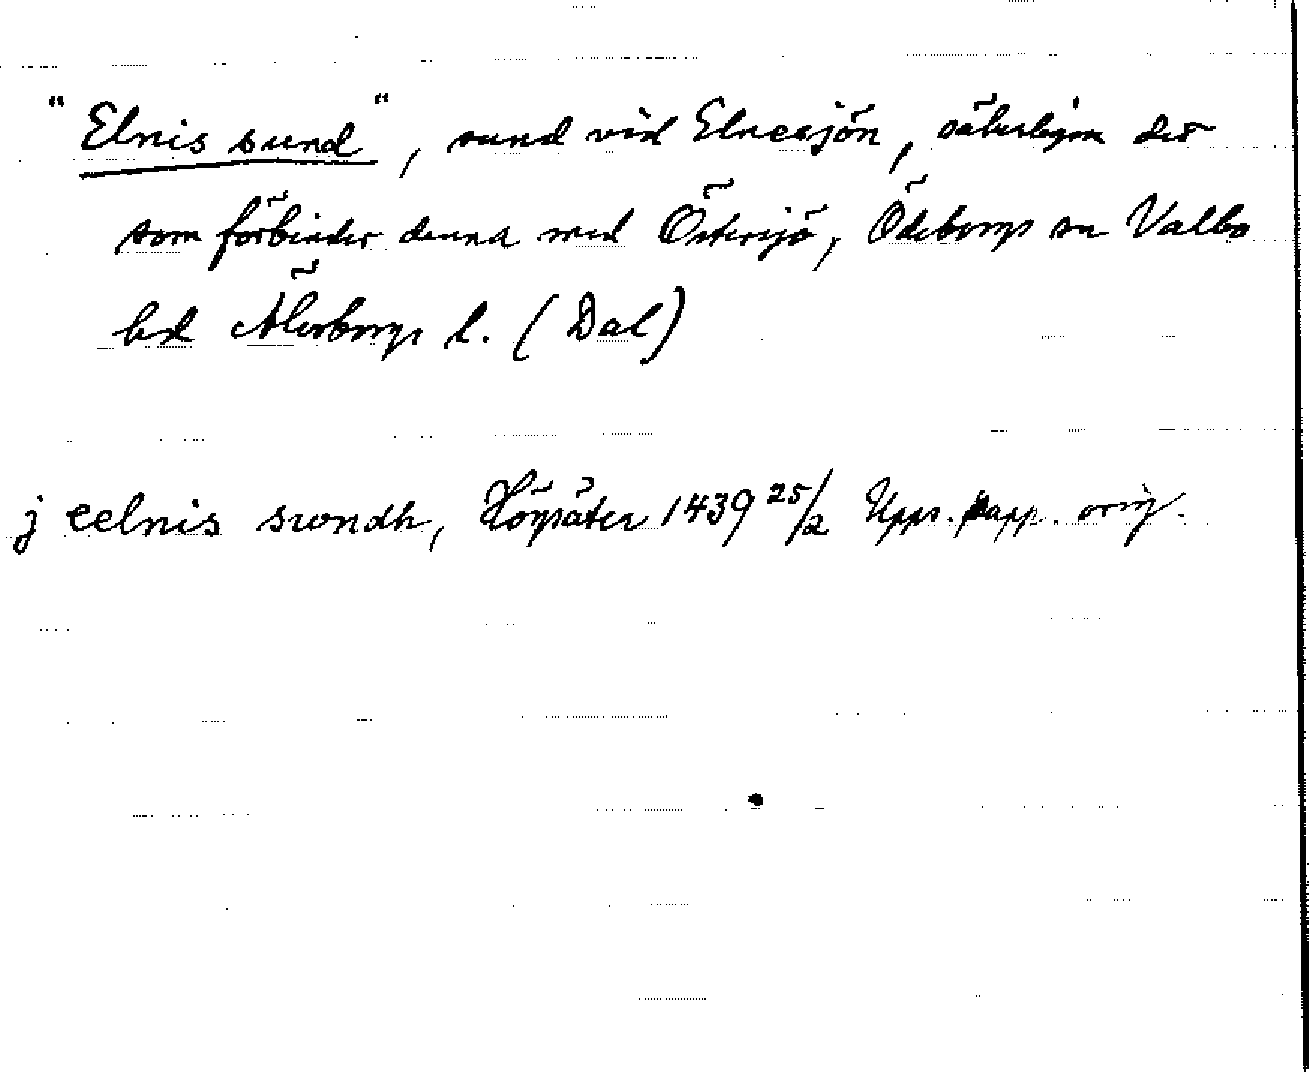 "Elnis sund", sund vid Elnesjön, säkerligen det
som förbinder denna med Östersjö, Ödeborgs sn Valbo
hd Älvsborgs l. (Dal)
j eelnis swndh, Högsäter 1439 25/2 Upps. papp. orig.